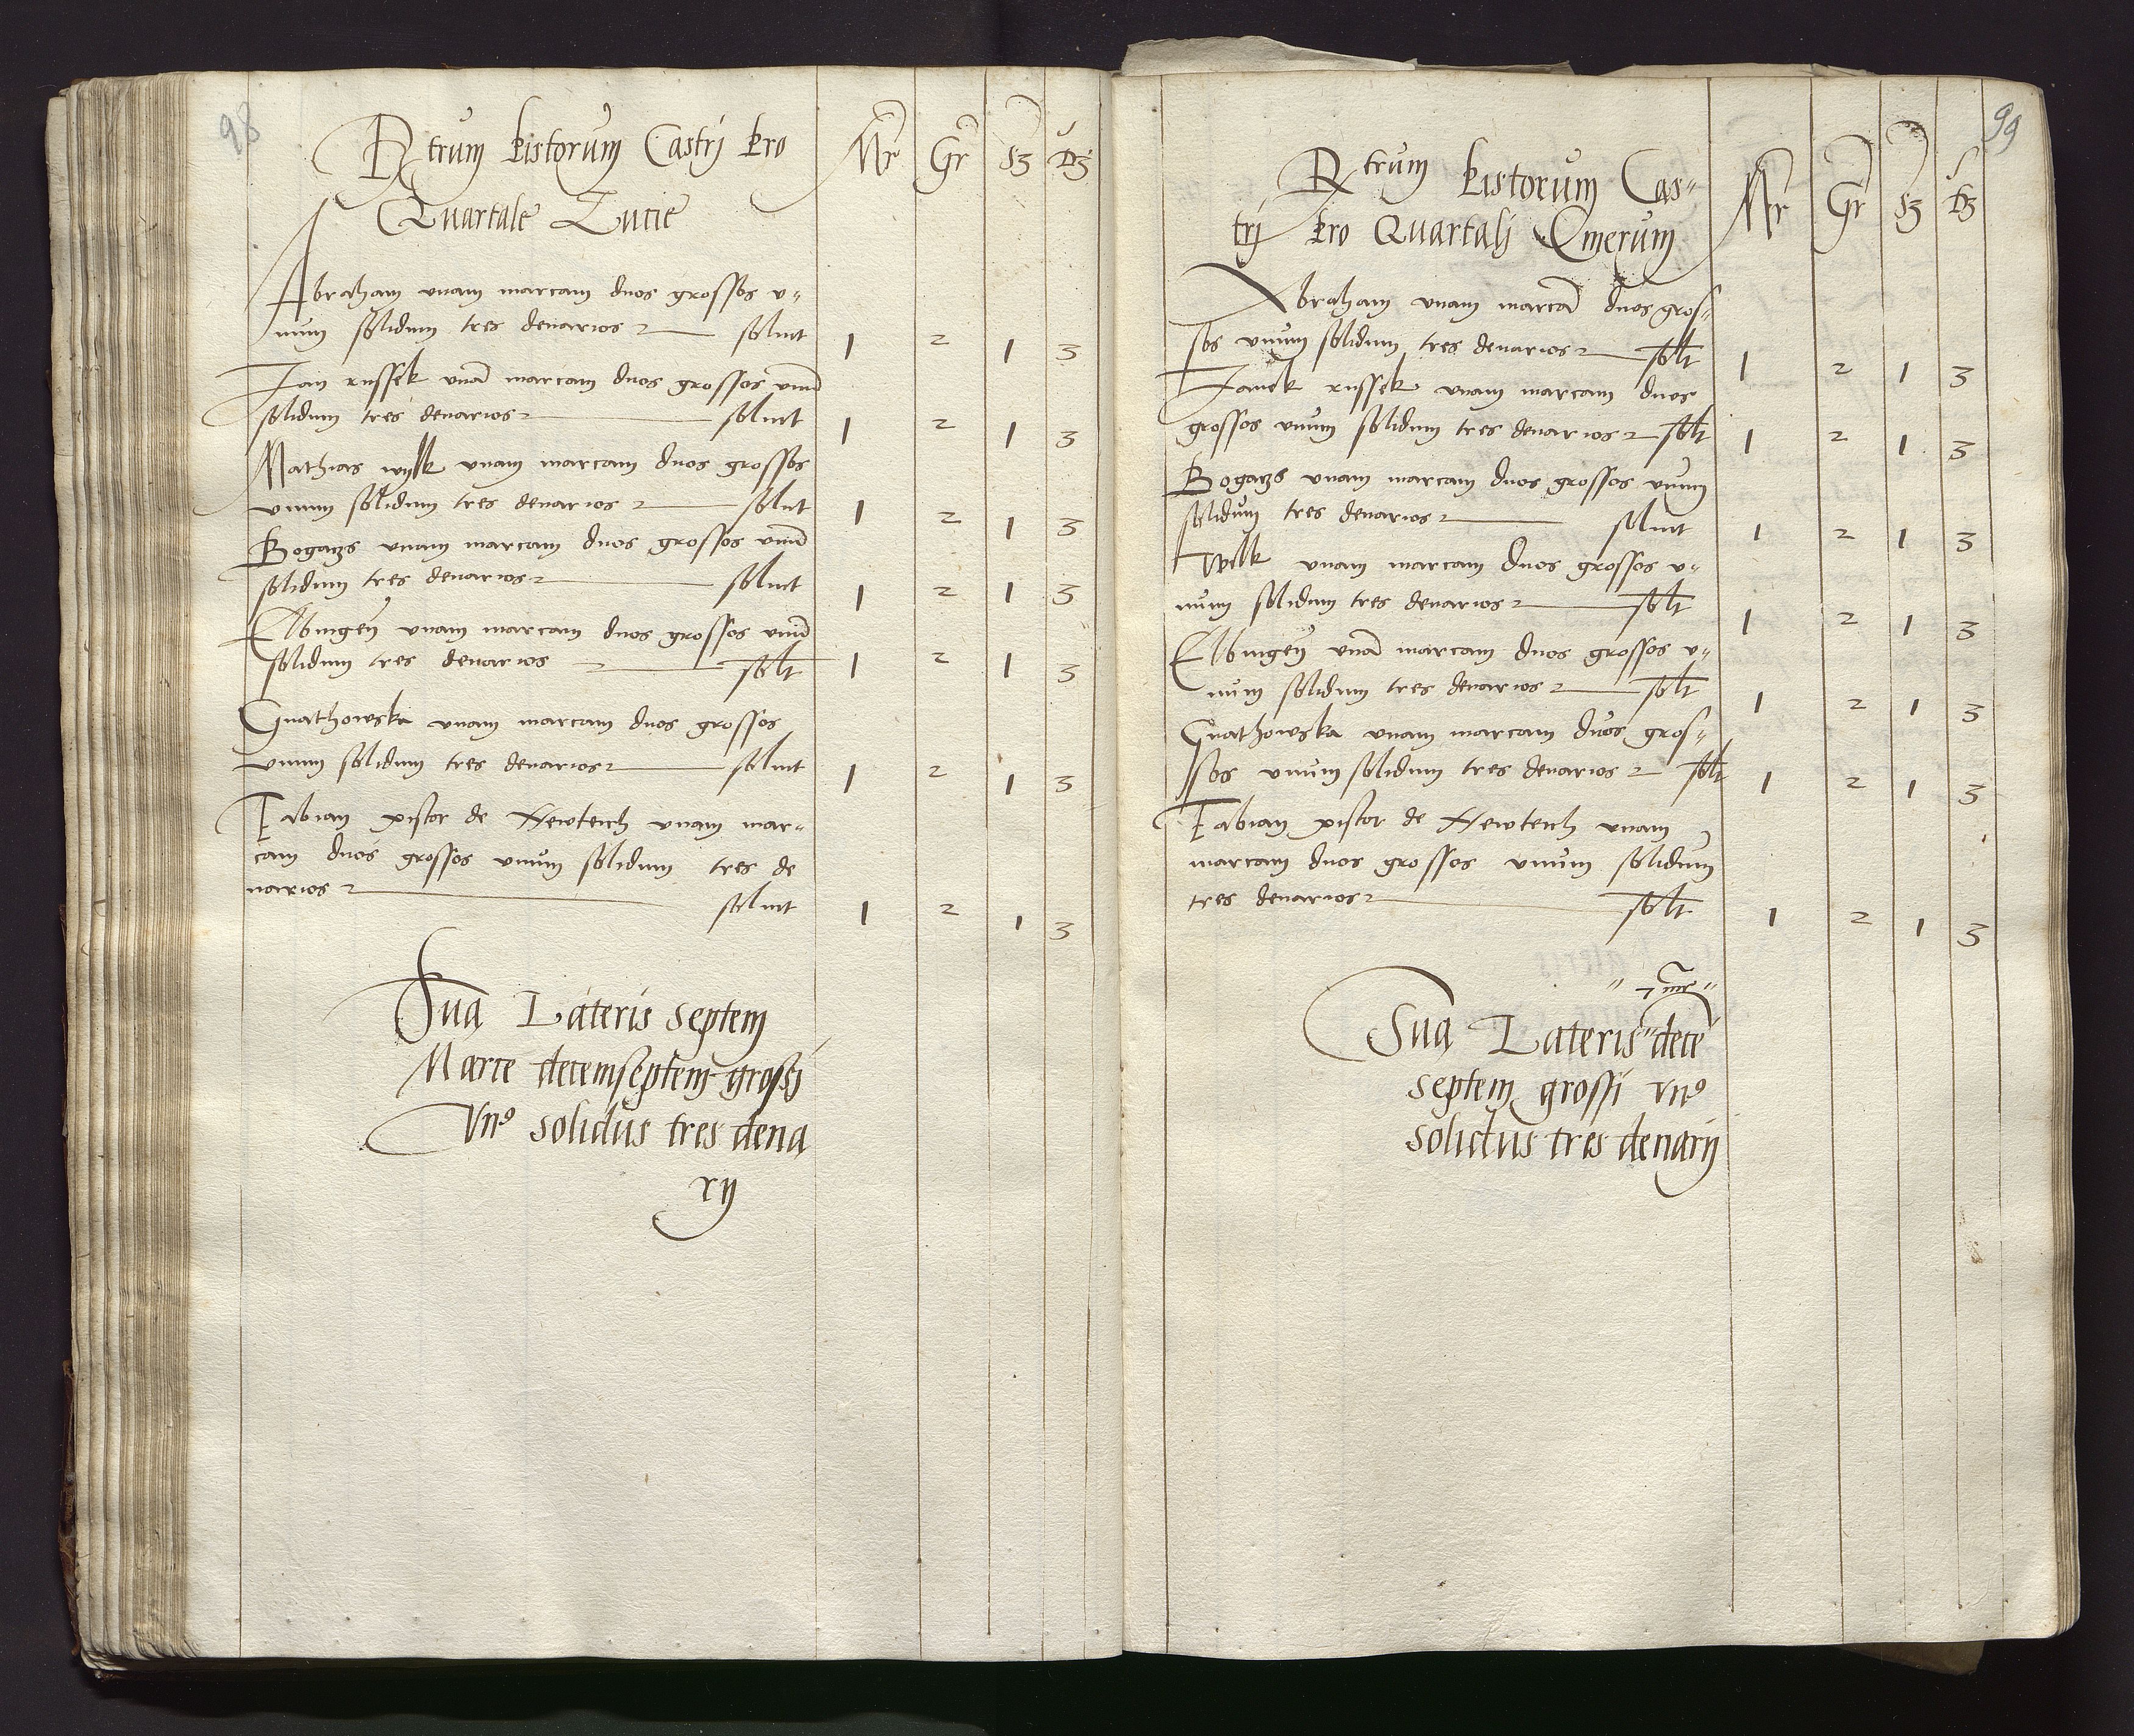 98
Rtrum Pistorum Castrj Pro Mr Gr Sz Dz
Quartale Lucie
Abraham vnam marcam duos grossos v-
num solidum tres denarios soluit 1 2 1 3
Jan russek vnā marcam duos grossos vnū
solidum tres denarios soluit 1 2 1 3
Mathias wylk vnam marcam duos grossos
vnum solidum tres denarios soluit 1 2 1 3
Bogaczs vnam marcam duos grossos vnū
solidum tres denarios soluit 1 2 1 3
Elbingen vnam marcam duos grossos vnū
solidum tres denarios solt 1 2 1 3
Gnathowska vnam marcam duos grossos
vnum solidum tres denarios soluit 1 2 1 3
Fabian pistor de Newteich vnam mar-
cam duos grossos vnum solidum tres de
narios soluit 1 2 1 3
Sua Lateris septem
Marce decemseptem grossi
Vno solidus tres dena
rij
99
Rtrum Pistorum Cas- Mr Gr Sz Dz
trj Pro Quartalj Cinerum
Abraham vnam marcā duos gros-
sos vnum solidum tres denarios solt 1 2 1 3
Janek russek vnam marcam duos
grossos vnum solidum tres denarios solt 1 2 1 3
Bogaczs vnam marcam duos grossos vnum
solidum tres denarios soluit 1 2 1 3
Wilk vnam marcam duos grossos v-
num solidum tres denarios solt 1 2 1 3
Elbingen vnā marcam duos grossos v-
num solidum tres denarios solt 1 2 1 3
Gnathowska vnam marcam duos gros-
sos vnum solidum tres denarios solt 1 2 1 3
Fabian pistor de Newteich vnam
marcam duos grossos vnum solidum
tres denarios solt 1 2 1 3
" 7 mr "
Sua Lateris " decē
septem grossi vno
solidus tres denarij